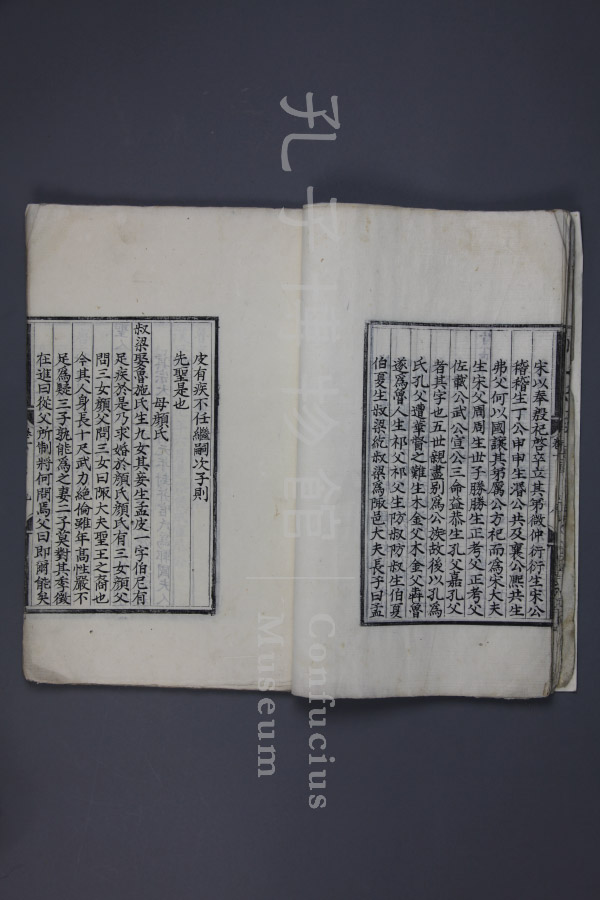 宋以奉殷祀啓卒立其弟微仲衍衍生宋公
稽稽生丁公申申生湣公共及襄公熙共生
弗父何以國讓其弟厲公方祀而爲宋大夫
生宋父周周生世子勝勝生正考父正考父
佐戴公武公宣公三命益恭生孔父嘉孔父
者其字也五世親盡别爲公族故後以孔爲
氏孔父遭華督之難生木金父木金父犇魯
遂爲魯人生祁父祁父生防叔防叔生伯夏
伯夏生叔梁紇叔梁爲陬邑大夫長子曰孟
皮有疾不任繼嗣次子則
先聖是也
母顔氏
叔梁娶魯施氏生九女其妾生孟皮一字伯尼有
足疾於是乃求婚於顔氏顔氏有三女顔父
問三女顔父問三女曰陬大夫聖王之裔也
今其人身長十尺武力絶倫雖年高性嚴不
足爲疑三子孰能爲之妻二子莫對其季徵
在進曰從父所制將何問焉父曰即爾能矣
孔子博物館
Confucius
Museum